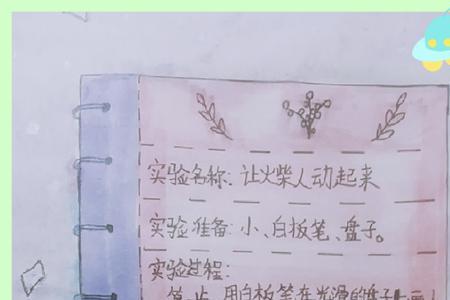 实验名称：让火柴人动起来
实验准备：小、白板笔、盘子。
实验过程：
第一步、用白板笔在光滑的盘子上画